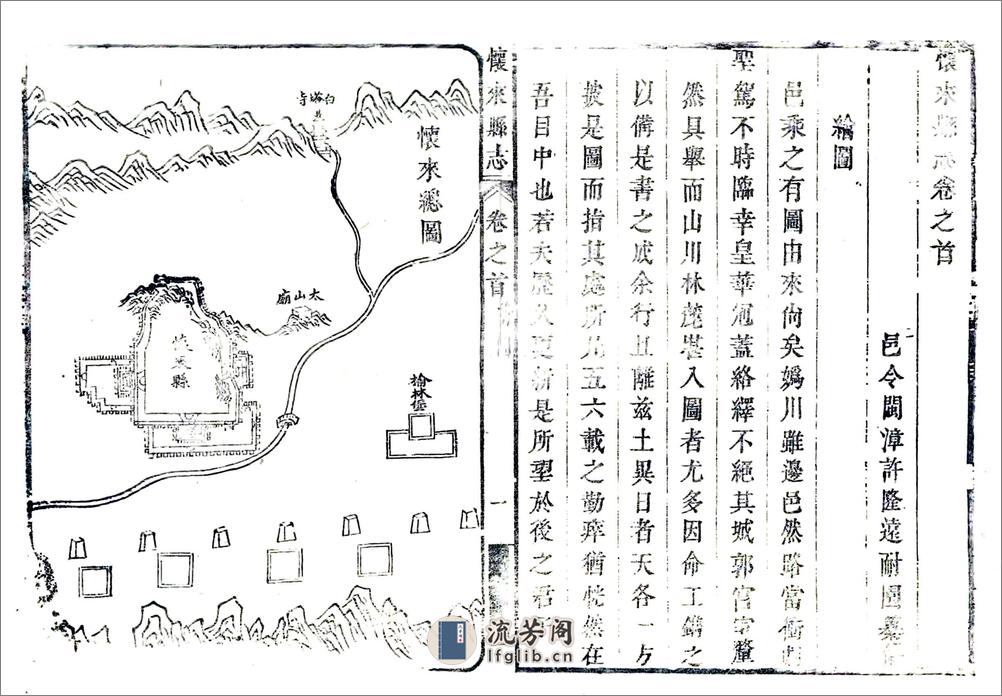 懷來縣志卷之首
邑令閩漳許隆遠耐園纂
繪圖
邑乘之有圖由來尚矣媯川雖邊邑然路當衝
聖駕不時臨幸皇華冠蓋絡繹不絕其城郭官室釐
然具舉而山川林麓堪入圖者尤多因命工鐫之
以備是書之成余行且離茲土異日者天各一方
披是圖而指其處所凡五六載之勤瘁猶恍然在
吾目中也若夫歷久更新是所望於後之君
懷來縣志
卷之首
一
懷來總圖
白塔寺
太山廟
懷來縣
榆林堡
流芳阁
lfglib.cn